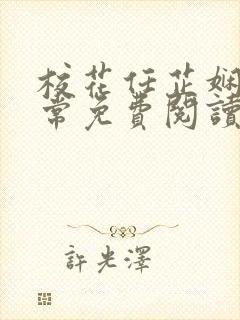 校花任芷娴
常免費閱讀
許光澤